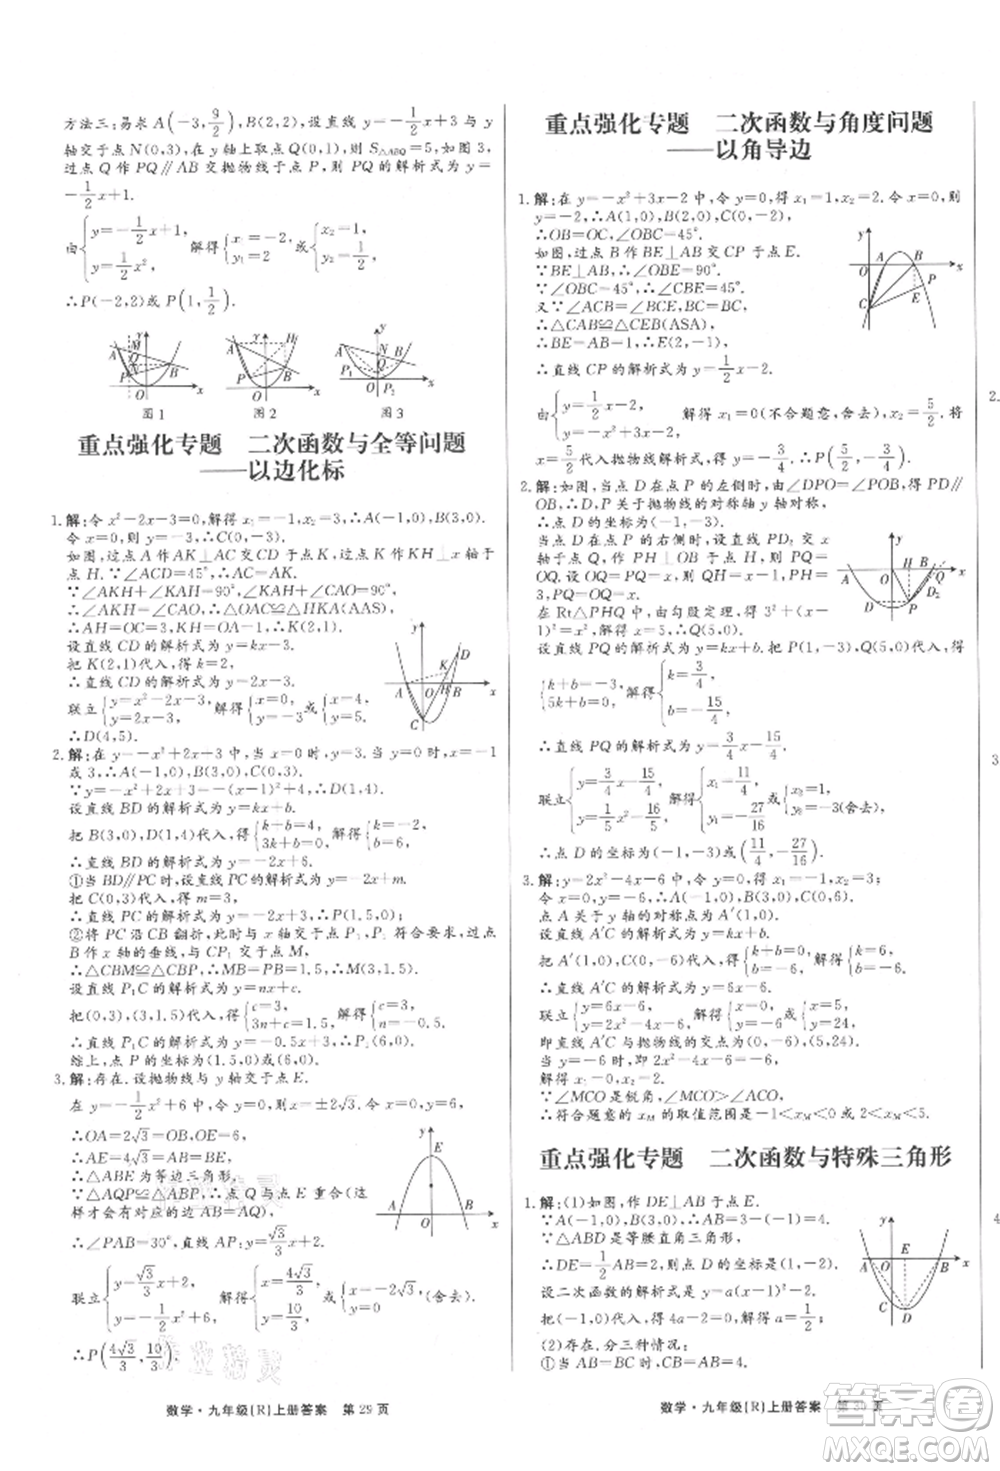 方法三:易求 A(-3, 9/2), B(2,2), 设直线 y=-1/2x+3 与 y
轴交于点 N(0,3), 在 y 轴上取点 Q(0,1), 则 S△ABQ=5, 如图
3, 过点 Q 作 PQ∥AB 交抛物线于点 P, 则直线 PQ 的解析式为 y=
-1/2x+1.
由{y=-1/2x+1, y=1/2x², 解得{x₁=-2, y₁=2 或{x₂=1, y₂=1/2.
∴P(-2,2)或 P(1, 1/2).
图1 图2 图3
重点强化专题 二次函数与全等问题
——以边化标
1. 解:令 x²-2x-3=0, 解得 x₁=-1, x₂=3, ∴A(-1,0), B(3,0).
令 x=0, 则 y=-3, ∴C(0,-3).
如图, 过点 A 作 AK⊥AC 交 CD 于点 K, 作 KH⊥x 轴于
点 H. ∵∠ACD=45°, ∴AC=AK.
∵∠AKH+∠KAH=90°, ∠KAH+∠CAO=90°.
∴∠AKH=∠CAO, ∴△OAC≌△HKA(AAS).
∴AH=OC=3, KH=OA=1, ∴K(2,1).
设直线 CD 的解析式为 y=kx-3.
把 K(2,1)代入, 得 k=2.
∴直线 CD 的解析式为 y=2x-3.
联立{y=x²-2x-3, y=2x-3, 解得{x=4, y=5 或{x=0, y=-3(舍去).
∴D(4,5).
2. 解:在 y=-x²+2x+3 中, 当 x=0 时, y=3, 当 y=0 时, x=-1
或 3, ∴A(-1,0), B(3,0), C(0,3).
∵y=-x²+2x+3=-(x-1)²+4, ∴D(1,4).
设直线 BD 的解析式为 y=kx+b.
把 B(3,0), D(1,4)代入, 得{k+b=4, 3k+b=0, 解得{k=-2, b=6.
∴直线 BD 的解析式为 y=-2x+6.
①当 BD∥PC 时, 设直线 PC 的解析式为 y=-2x+m.
∴直线 PC 的解析式为 y=-2x+3, ∴P(1.5,0).
②将 PC 沿 CB 翻折, 此时与 x 轴交于点 P₁, P₁ 符合要求, 过点
B 作 x 轴的垂线, 与 CP₁ 交于点 M,
∴△CBM≌△CBP, ∴MB=PB=3-1.5=1.5.
设直线 P₁C 的解析式为 y=nx+c.
把(0,3), (3,1.5)代入, 得{c=3, 3n+c=1.5, 解得{c=3, n=-0.5.
∴直线 P₁C 的解析式为 y=-0.5x+3, ∴P₁(6,0).
综上, 点 P 的坐标为(1.5,0)或(6,0).
3. 解:存在. 设抛物线与 y 轴交于点 E.
在 y=-1/2x²+6 中, 令 y=0, 得 x=±2√3.
∴OA=2√3=OB, OE=6,
∴AE=4√3=AB=BE,
∴△ABE 为等边三角形.
∵△AQP≌△ABP, ∴点 Q 与点 E 重合(此时
∴∠PAB=30°, 直线 AP: y=√3/3x+2.
联立{y=√3/3x+2, y=-1/2x²+6, 解得{x=4√3/3, y=10/3 或{x=-2√3, y=0 (舍去).
∴P(4√3/3, 10/3).
数学·九年级(R)上册答案 第29页
重点强化专题 二次函数与角度问题
——以角导边
1. 解:在 y=-x²+3x-2 中, 令 y=0, 得 x₁=1, x₂=2, 令 x=0, 则
y=-2, ∴A(1,0), B(2,0), C(0,-2).
∴OB=OC, ∠OBC=45°.
如图, 过点 B 作 BE⊥AB 交 CP 于点 E.
∵BE⊥AB, ∴∠OBE=90°.
∵∠OBC=45°, ∴∠CBE=45°.
又∵∠ACB=∠BCE, BC=BC,
∴△CAB≌△CEB(ASA).
∴BE=AB=1, ∴E(2,-1).
∴直线 CP 的解析式为 y=1/2x-2.
由{y=1/2x-2, y=-x²+3x-2, 解得 x₁=0(不合题意, 舍去), x₂=5/2. 将
x=5/2代入抛物线解析式, 得 y=-3/4, ∴P(5/2, -3/4).
2. 解:如图, 当点 D 在点 P 的左侧时, 由∠DPO=∠POB, 得 PD∥
OB, ∴点 D、P 关于抛物线的对称轴 y 轴对称,
∴点 D 的坐标为(-1,-3).
当点 D 在点 P 的右侧时, 设直线 PD₂ 交 x
轴于点 Q, 作 PH⊥OB 于点 H, 则 PQ=
OQ. 设 OQ=PQ=x, 则 QH=x-1, PH=
3.
在 Rt△PHQ 中, 由勾股定理, 得 3²+(x-
1)²=x², 解得 x=5, ∴Q(5,0).
设直线 PQ 的解析式为 y=kx+b, 把P(1,-3), Q(5,0)代入, 得
{k+b=-3, 5k+b=0, 解得{k=3/4, b=-15/4.
∴直线 PQ 的解析式为 y=3/4x-15/4.
∴点 D 的坐标为(-1,-3)或(11/4, -27/16).
3. 解:当 2x²-4x-6=0 时, x₁=-1, x₂=3;
点 A 关于 y 轴的对称点为 A′(1,0).
设直线 A′C 的解析式为 y=kx+b.
把 A′(1,0), C(0,-6)代入, 得{k+b=0, b=-6, 解得{k=6, b=-6.
∴直线 A′C 的解析式为 y=6x-6.
联立{y=6x-6, y=2x²-4x-6, 解得{x=0, y=-6 或{x=5, y=24,
即直线 A′C 与抛物线的交点为(0,-6), (5,24).
当 y=-6 时, x₁=0, x₂=2.
∵∠MCO 是锐角, ∠MCO>∠ACO,
∴符合题意的 xM 的取值范围是-1<xM<0或2<xM<5.
重点强化专题 二次函数与特殊三角形
1. 解:(1)如图, 作 DE⊥AB 于点 E.
∵A(-1,0), B(3,0), ∴AB=3-(-1)=4.
∵△ABD 是等腰直角三角形,
∴DE=1/2AB=2, ∴点 D 的坐标为(1,-2).
设二次函数的解析式为 y=a(x-1)²-2.
把(-1,0)代入, 得 0=4a-2, ∴a=1/2.
(2)存在, 分三种情况:
①当 AB=BC=4 时,
数学·九年级(R)上册答案 第30页
2.
3
4
答案圈
MXQE.COM